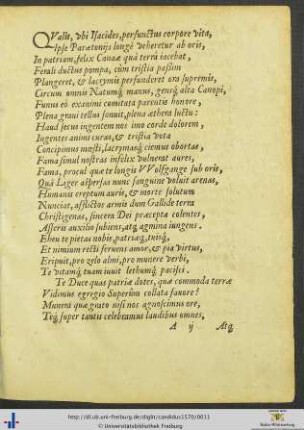 QValis, vbi Isacides, perfunctus corpore vita,
Ipse Parætonijs longè veheretur ab oris,
In patriam, felix Canaæ quà terra iacebat,
Ferali ductus pompa, cùm tristia passim
Plangeret, & lacrymis perfunderet ora supremis,
Circum omnis Natumq́ manus, gensq́ alta Canopi,
Funus eò exanimi comitata parentis honore,
Plena graui tellus sonuit, plena æthera luctu:
Haud secus ingentem nos imo corde dolorem,
Ingentes animi curas, & tristia vota
Concipimus mæsti, lacrymasq́ ciemus obortas,
Fama simul nostras infelix vulnerat aures,
Fama, procul quæ te longis VVolfgange sub oris,
Quà Lager aspersas nunc sanguine voluit arenas,
Humanis ereptum auris, & morte solutum
Nunciat, afflictos armis dum Gallide terra
Christigenas, sincera Dei præcepta colentes,
Asseris auxilio subiens, atq́ agmina iungens.
Eheu te pietas nobis, patriæq́, suisq́,
Et nimium recti feruens amor, & pia virtus,
Eripuit, pro zelo almi, pro munere verbi,
Te vitamq́ tuam iuuit lethumq́ pacisci.
Te Duce quas patriæ dotes, quæ commoda terræ
Vidimus egregio Superûm collata fauore!
Munera quæ grato nisi nos agnoscimus ore,
Teq́ super tantis celebramus laudibus omnes,
A ij Atq́
http://dl.ub.uni-freiburg.de/diglit/candidus1570/0011
© Universitätsbibliothek Freiburg
Baden-Württemberg